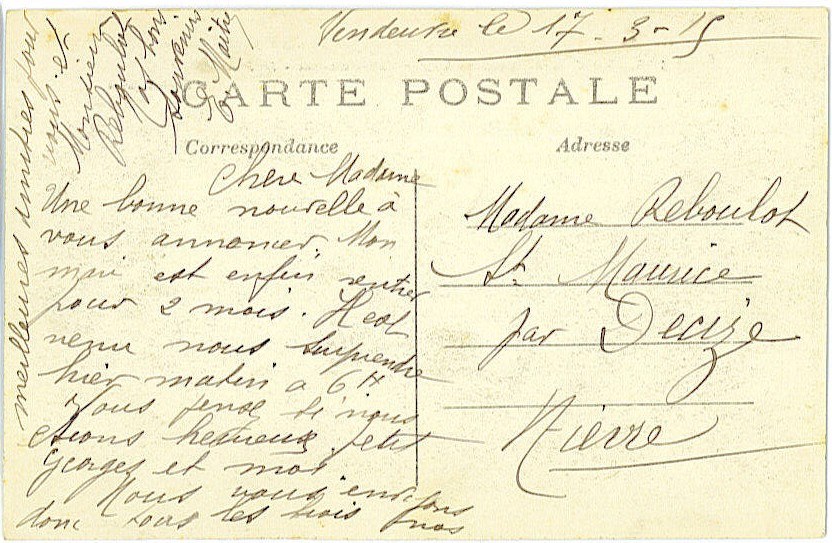 Vendeuvre le 17-3-15
CARTE POSTALE
Correspondance
Adresse
Chere Madame
Une bonne nouvelle à
vous annoncer. Mon
mari est enfin rentrer
pour 2 mois. Il est
venu nous surprendre
hier matin a 6 H
Vous pensez si nous
etions heureux petit
Georges et moi
Nous vous envoyons
donc tous les trois nos
meilleures amities pour
vous et
Monsieur
Reboulot
bons
souvenirs
Madame Reboulot
St Maurice
par Decize
Nièvre